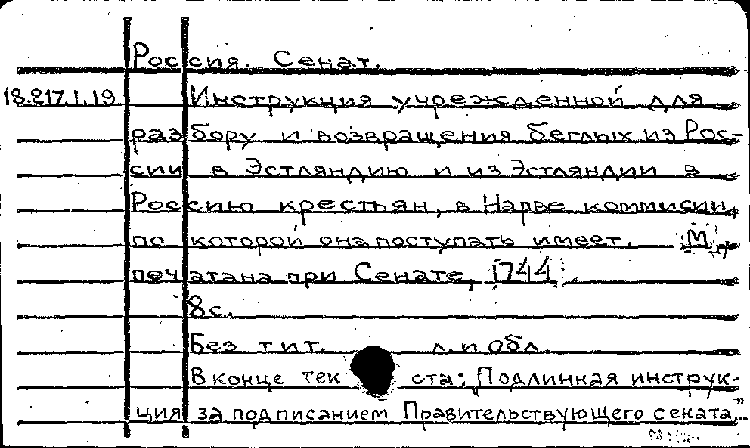 Россия. Сенат.
18.217.1.19 Инструкция учрежденной для
разбору и возвращения беглых из Рос-
сии в Эстляндию и из Эстляндии в
Россию крестьян, в Нарве коммисии,
по которой она поступать имеет. М.,
печатана при Сенате, 1744.
8с.
Без тит. л. и обл.
В конце текста: „Подлинная инструк-
ция за подписанием Правительствующего сената"